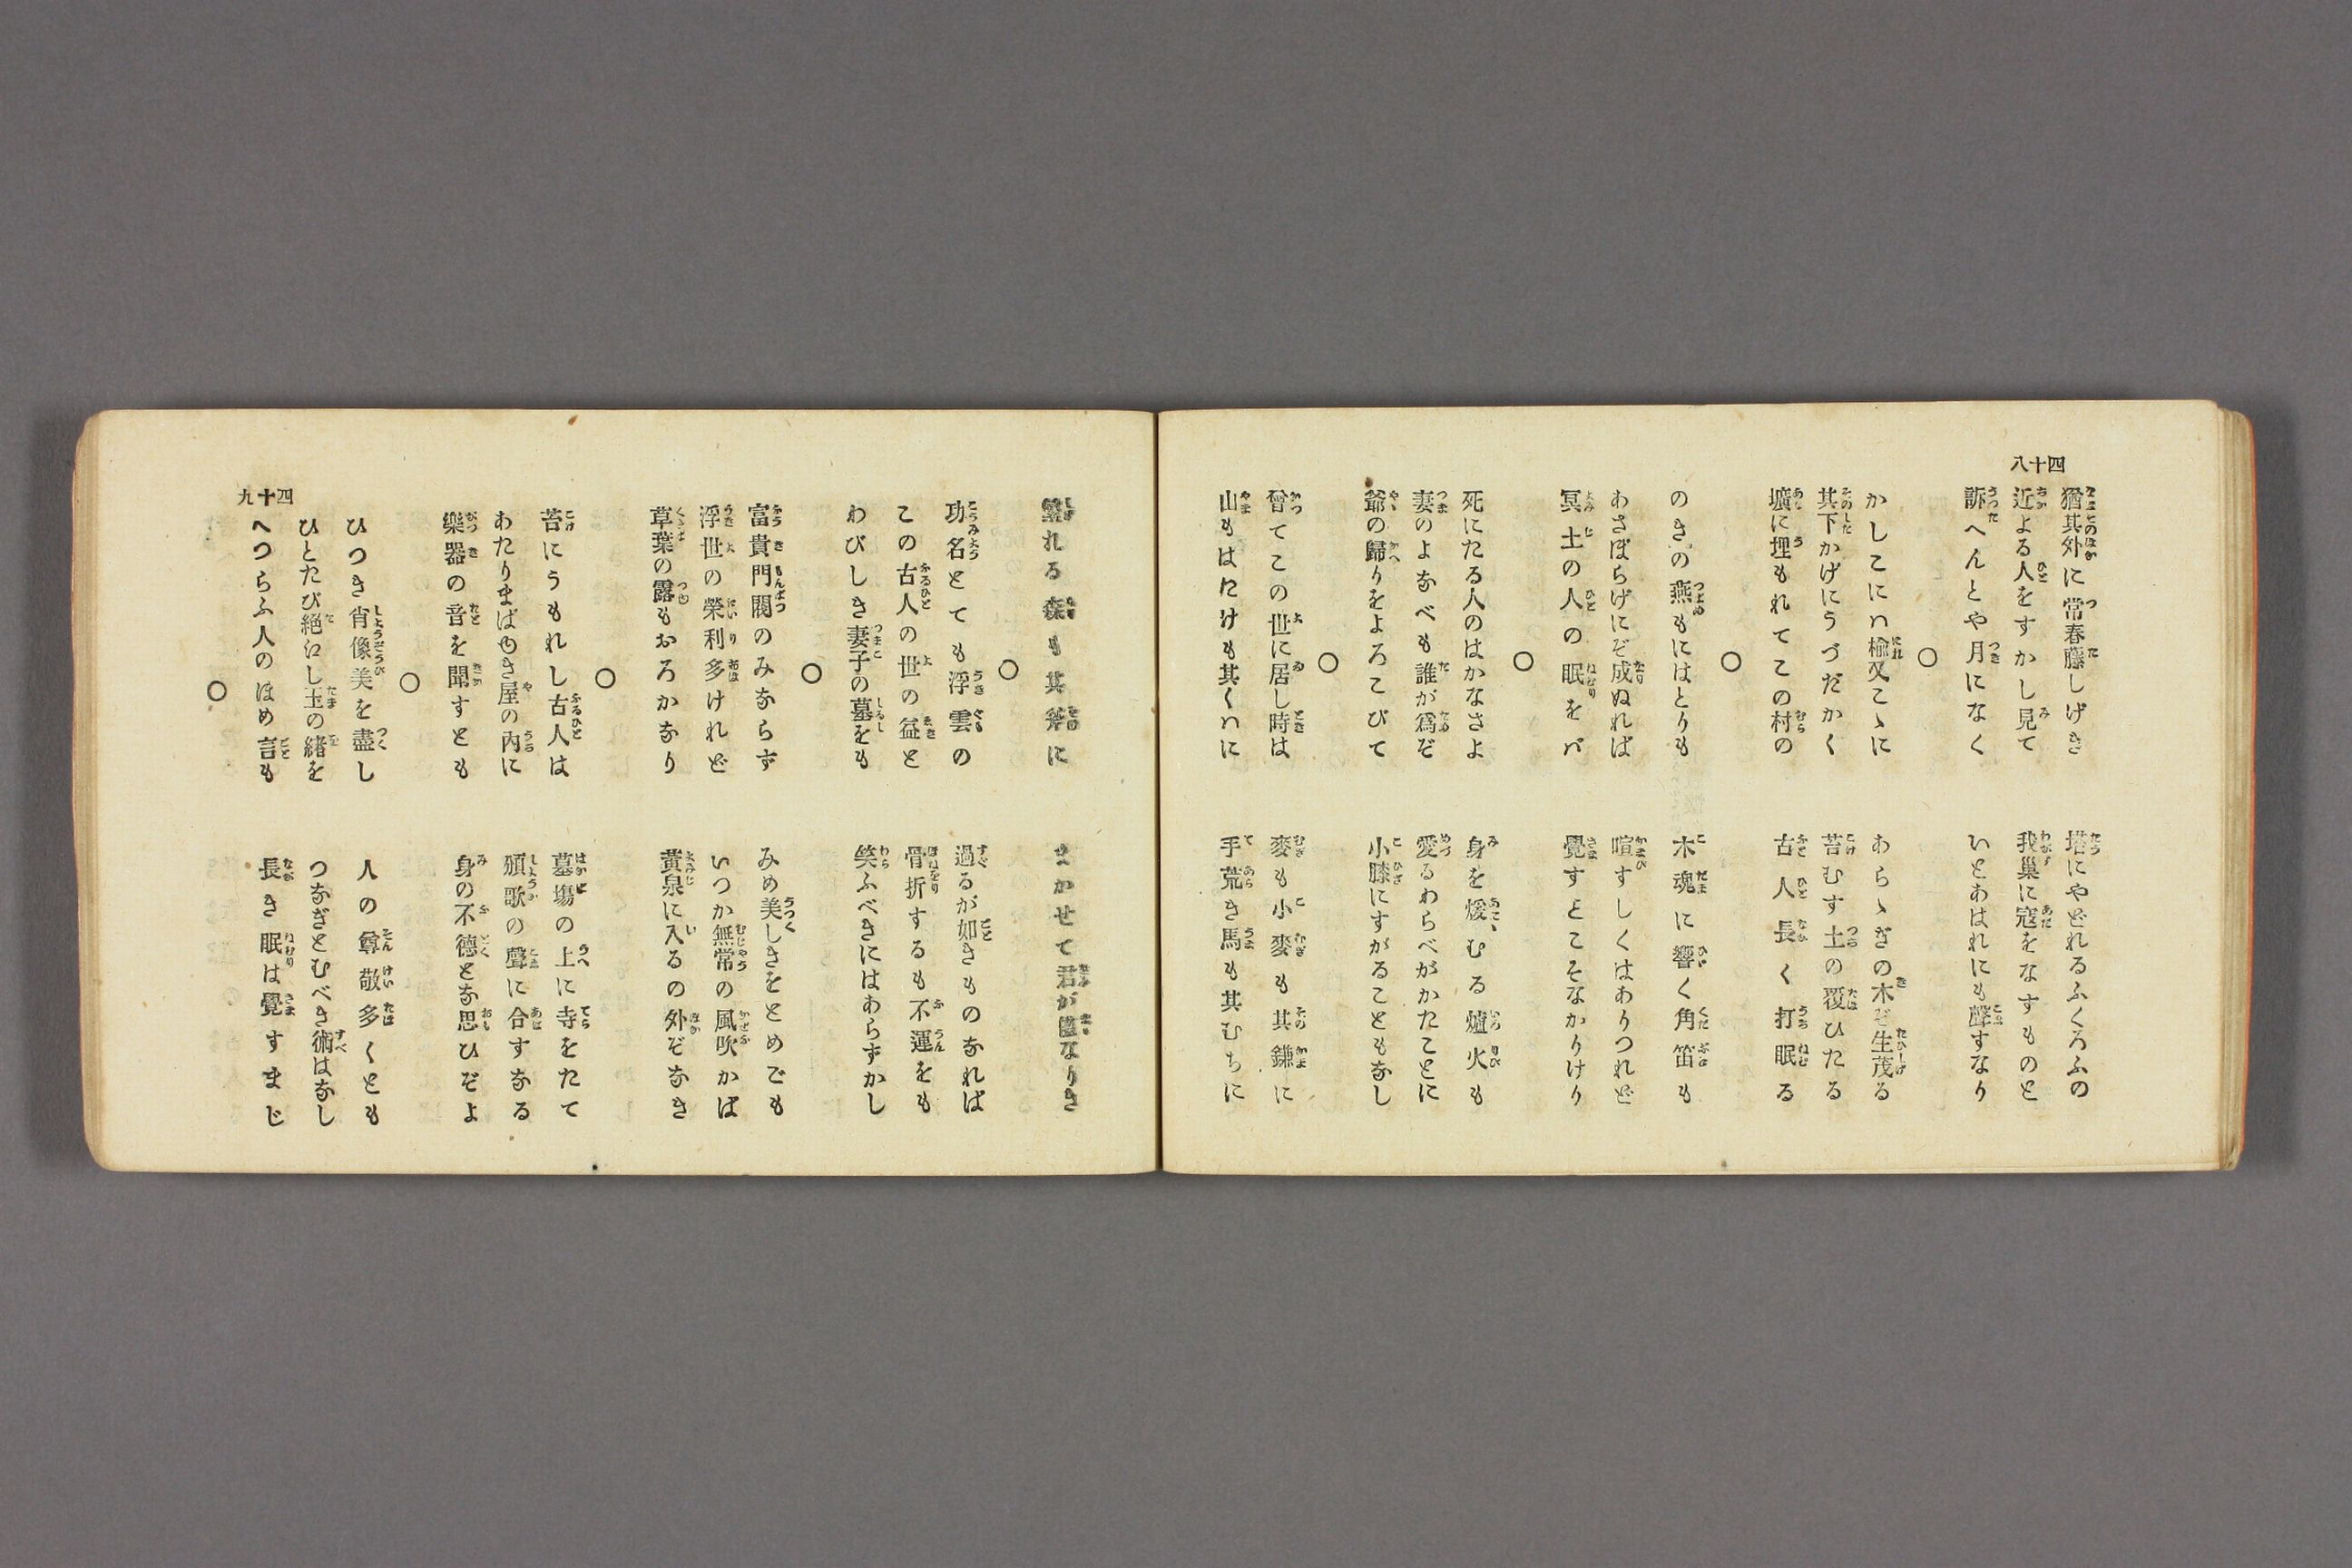 四十八
猶其外に常春藤しげき　塔にやどれるふくろふの
近よる人をすかし見て　我巣に寇をなすものと
訴へんとや月になく　いとあはれにも聲すなり
○
かしこにハ楡又こゝに　あらゝぎの木ぞ生茂る
其下かげにうづだかく　苔むす土の覆ひたる
壙に埋もれてこの村の　古人長く打眠る
○
のきの燕もにはとりも　木魂に響く角笛も
あさぼらげにぞ成ぬれば　喧すしくはありつれど
冥土の人の眠をバ　覺すとこそなかりけり
○
死にたる人のはかなさよ　身を煖むる爐火も
妻のよなべも誰が爲ぞ　愛るわらべがかたことに
爺の歸りをよろこびて　小膝にすがることもなし
○
曾てこの世に居し時は　麥も小麥も其鎌に
山もはたけも其くハに　手荒き馬も其むちに
れる森も其斧に　まかせて君が儘なりき
○
功名とても浮雲の　過るが如きものなれば
この古人の世の益と　骨折するも不運をも
わびしき妻子の墓をも　笑ふべきにはあらずかし
○
富貴門閥のみならず　みめ美しきをとめごも
浮世の榮利多けれど　いつか無常の風吹かば
草葉の露もおろかなり　黄泉に入るの外ぞなき
○
苔にうもれし古人は　墓塲の上に寺をたて
あたりまばゆき屋の内に　頌歌の聲に合すなる
樂器の音を聞すとも　身の不德とな思ひぞよ
○
ひつき肖像美を盡し　人の尊敬多くとも
ひとたび絶にし玉の緒を　つなぎとむべき術はなし
へつらふ人のほめ言も　長き眠は覺すまじ
○
四十九